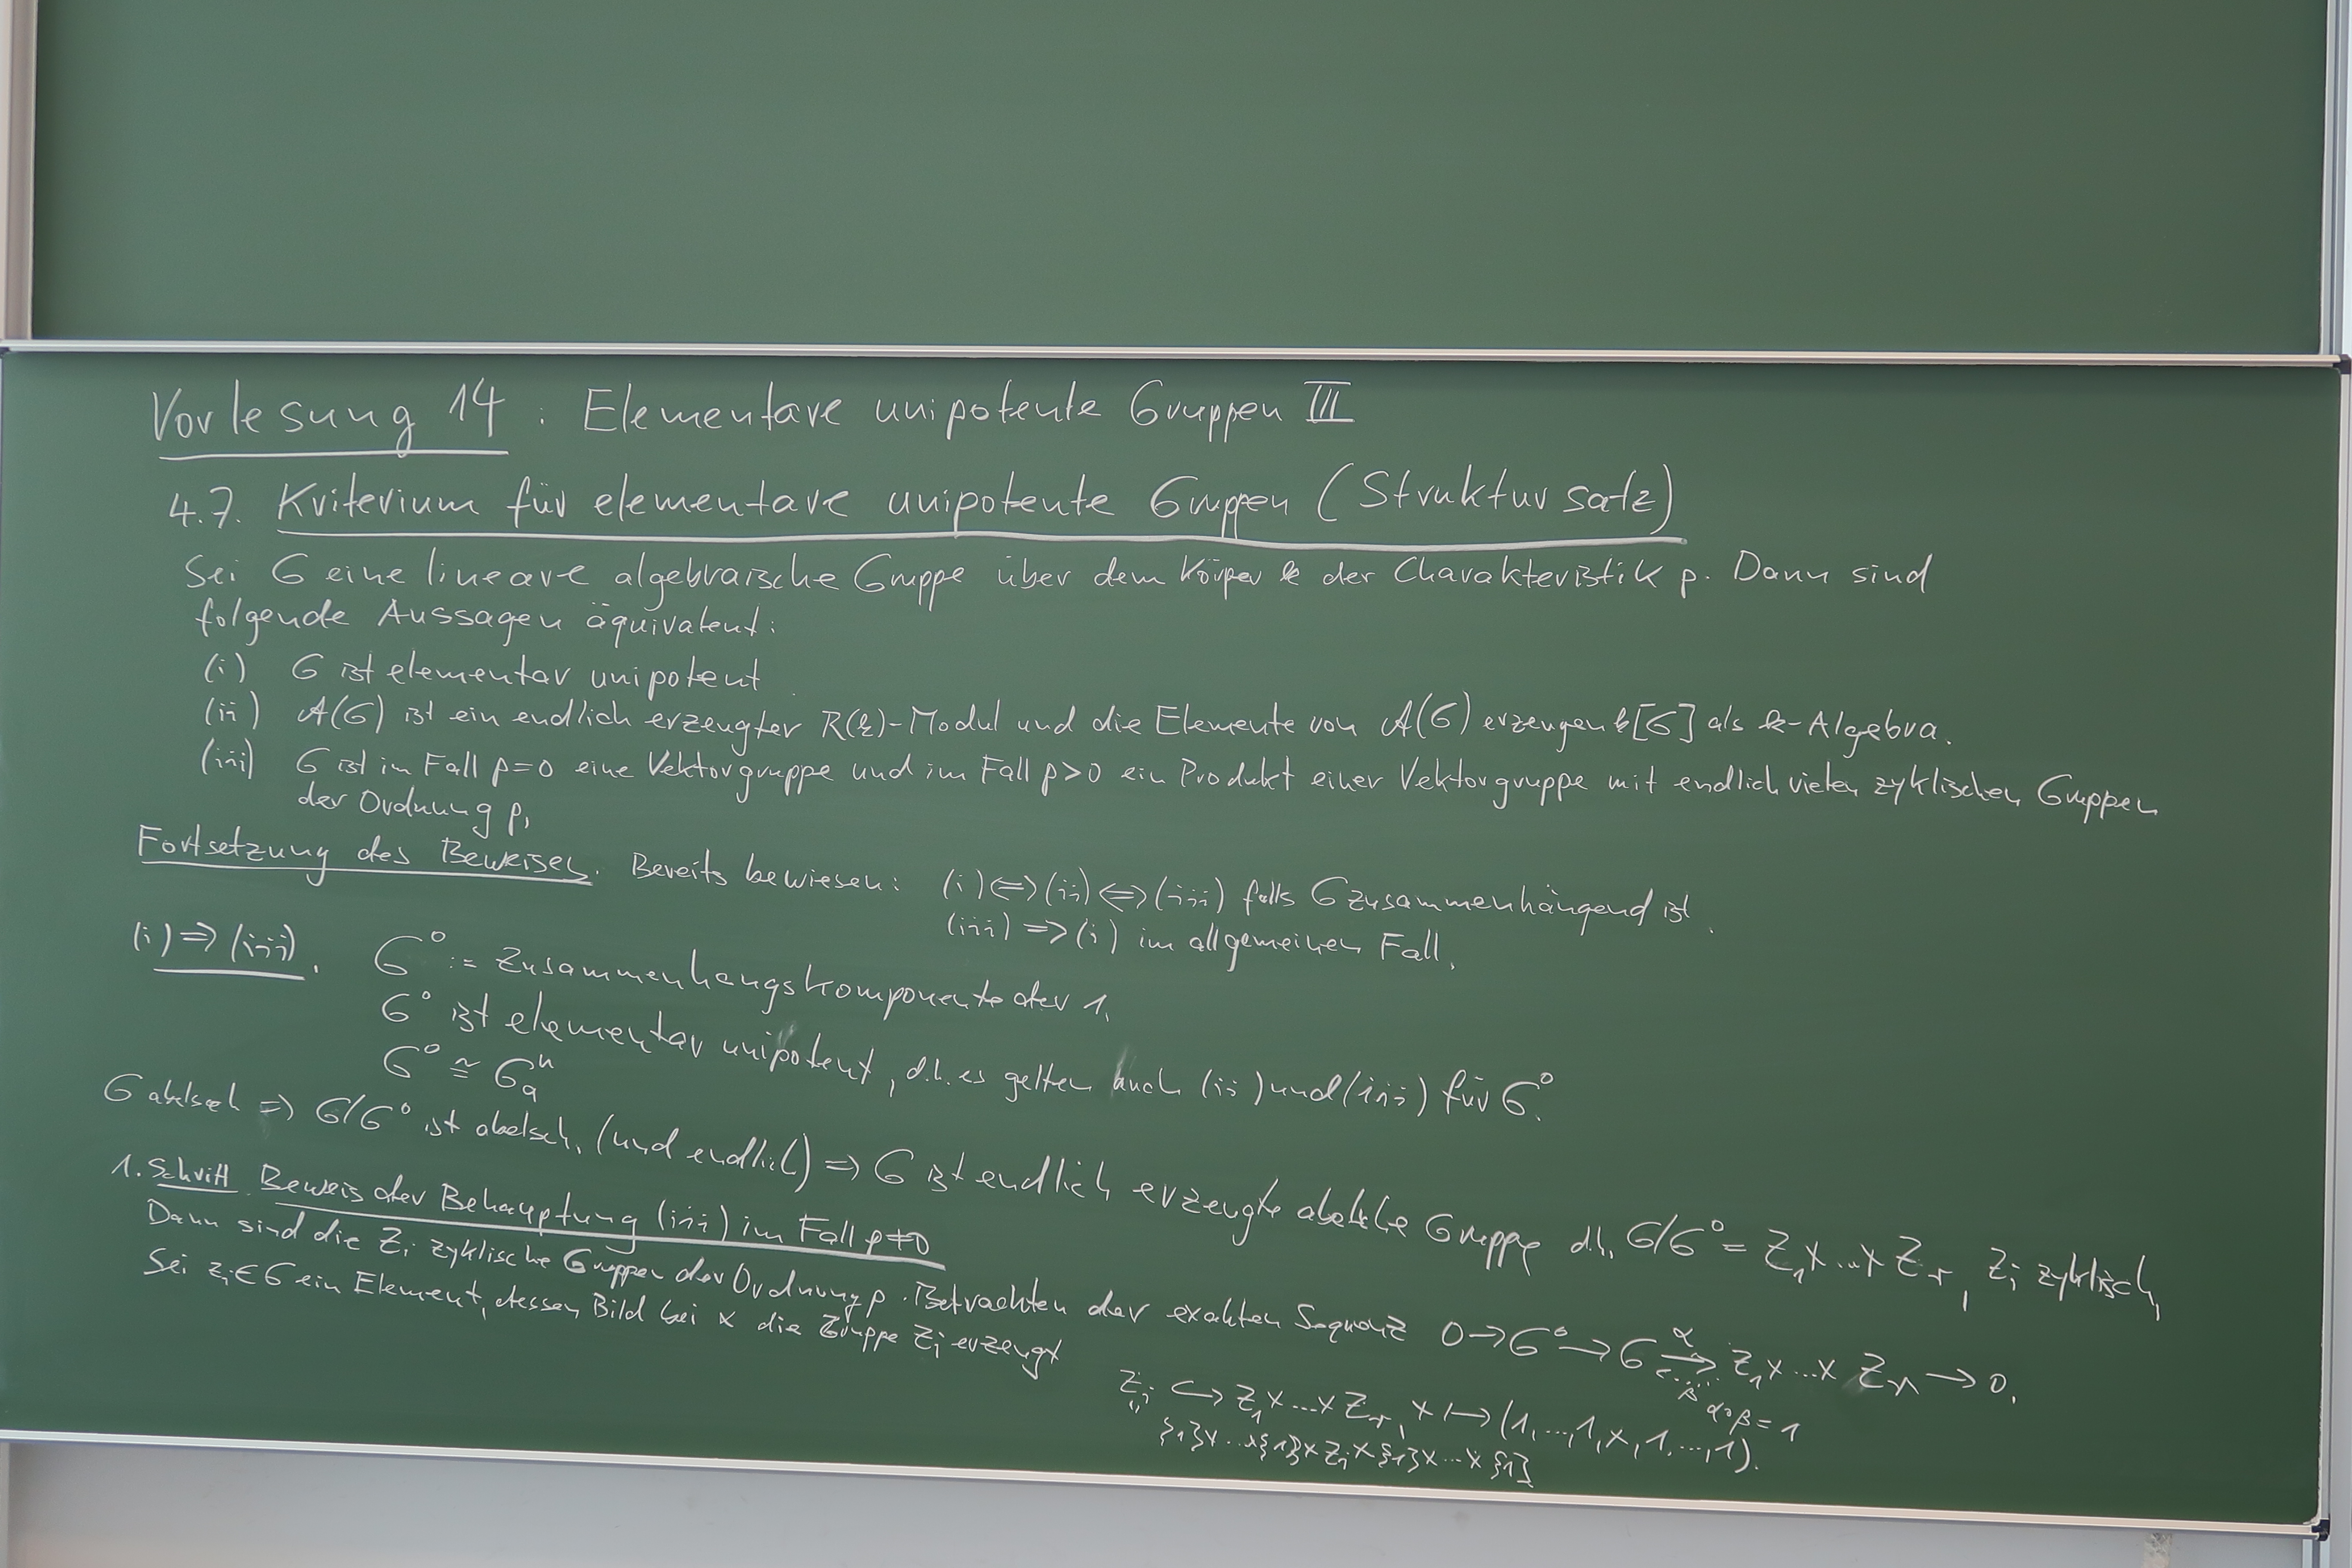 Vorlesung 14 : Elementare unipotente Gruppen III
4.7. Kriterium für elementare unipotente Gruppen (Struktursatz)
Sei G eine lineare algebraische Gruppe über dem Körper k der Charakteristik p. Dann sind
folgende Aussagen äquivalent:
(i) G ist elementar unipotent.
(ii) A(G) ist ein endlich erzeugter R(k)-Modul und die Elemente von A(G) erzeugen k[G] als k-Algebra.
(iii) G ist im Fall p=0 eine Vektorgruppe und im Fall p>0 ein Produkt einer Vektorgruppe mit endlich vielen zyklischen Gruppen
der Ordnung p.
Fortsetzung des Beweises. Bereits bewiesen: (i)⇔(ii)⇔(iii) falls G zusammenhängend ist.
(iii)⇒(i) im allgemeinen Fall.
(i)⇒(iii). G° := Zusammenhangskomponente der 1.
G° ist elementar unipotent, d.h. es gelten auch (ii) und (iii) für G°.
G° ≅ Gₐⁿ
G abelsch ⇒ G/G° ist abelsch, (und endlich) ⇒ G ist endlich erzeugte abelsche Gruppe d.h. G/G° = Z₁×...×Zᵣ, Zᵢ zyklisch,
1. Schritt. Beweis der Behauptung (iii) im Fall p≠0
Dann sind die Zᵢ zyklische Gruppen der Ordnung p. Betrachten der exakten Sequenz 0→G°→G ⇄ Z₁×...×Zᵣ→0.
α
β
α∘β=1
Sei zᵢ∈G ein Element, dessen Bild bei α die Gruppe Zᵢ erzeugt
Zᵢ ↪ Z₁×...×Zᵣ, x↦(1,...,1,x,1,...,1).
{1}×...×{1}×Zᵢ×{1}×...×{1}